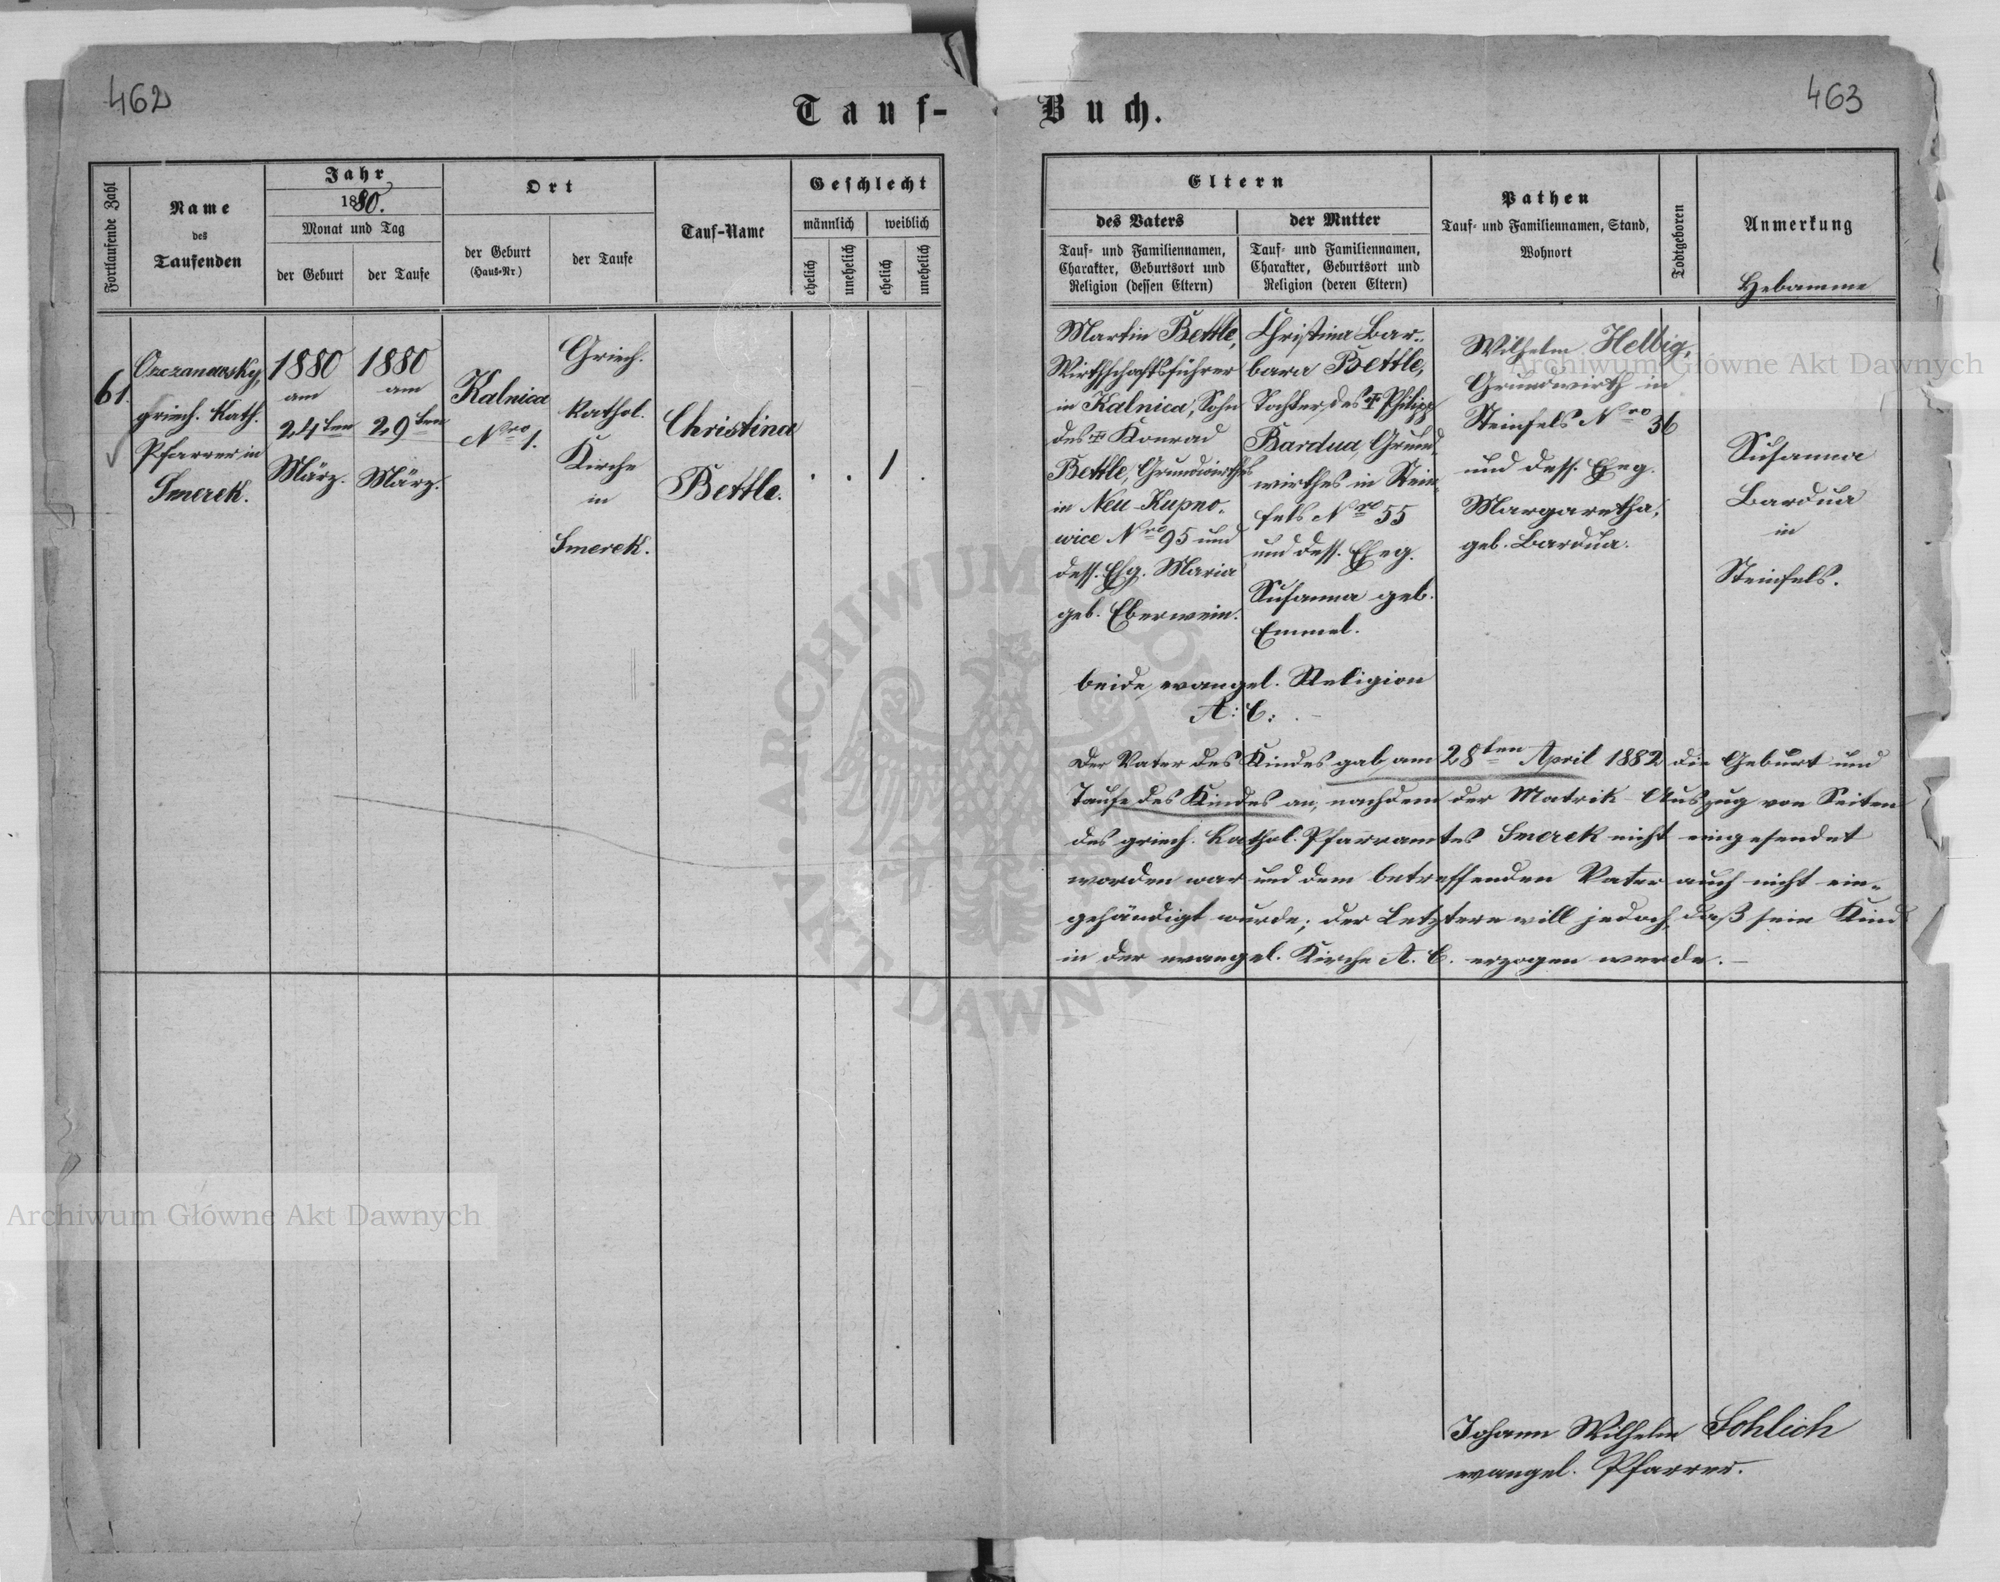 462
463
Tauf-Buch.
Fortlaufende Zahl
Name
des
Taufenden
Jahr
1880.
Monat und Tag
der Geburt
der Taufe
Ort
der Geburt
(Haus-Nr)
der Taufe
Tauf-Name
Geschlecht
männlich
weiblich
ehelich
unehelich
ehelich
unehelich
Eltern
des Vaters
der Mutter
Tauf- und Familiennamen,
Charakter, Geburtsort und
Religion (dessen Eltern)
Tauf- und Familiennamen,
Charakter, Geburtsort und
Religion (deren Eltern)
Pathen
Tauf- und Familiennamen, Stand,
Wohnort
Todtgeboren
Anmerkung
Hebamme
61.
griech. kath.
Pfarrer in
Smerek.
1880
am
24ten
März.
1880
am
29ten
März.
Kalnica
Nro 1.
Griech.
kathol.
Kirche
in
Smerek.
Christina
Bettle.
. . 1 .
Martin Bettle,
Wirthschaftsführer
in Kalnica, Sohn
des † Konrad
Bettle, Grundwirthes
in Neu-Kupno-
wice Nro 95 und
dess. Ehg. Maria
geb. Eberwein.
Christina Bar-
bara Bettle,
Tochter des † Philipp
Bardua, Grund-
wirthes in Stein-
fels Nro 55
und dess. Eheg.
Susanna geb.
Emmel.
beide evangel. Religion
A: C: . –
Wilhelm Helbig,
Grundwirth in
Steinfels Nro 36
und dess. Eheg.
Margaretha,
geb. Bardua.
Susanna
Bardua
in
Steinfels.
Der Vater des Kindes gab am 28ten April 1882 die Geburt und
Taufe des Kindes an, nachdem der Matrik-Auszug von Seiten
des griech. kathol. Pfarramtes Smerek nicht eingesendet
worden war und dem betreffenden Vater auch nicht ein-
gehändigt wurde; der Letztere will jedoch, daß sein Kind
in der evangel. Kirche A. C. erzogen werde. –
Johann Wilhelm
evangel. Pfarrer.
Archiwum Główne Akt Dawnych
Archiwum Główne Akt Dawnych